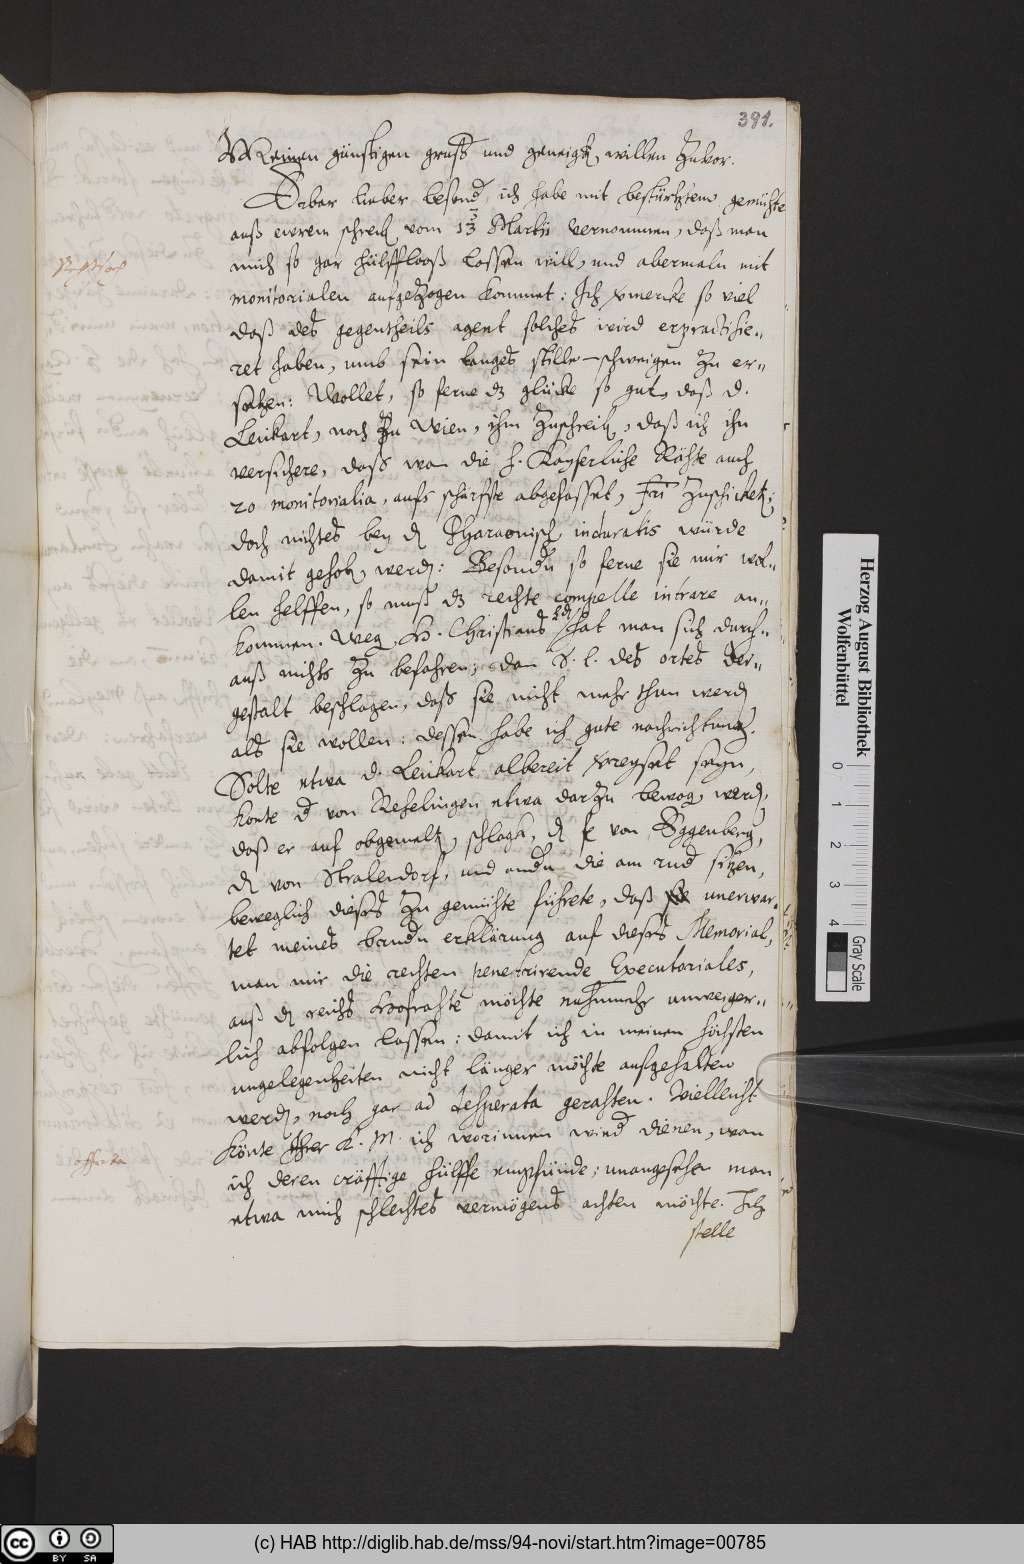 391.
Meinen günstigen gruß und geneigten willen zuvor.
Erbar lieber besonder, ich habe mit bestürtztem gemühte
auß ewerem schreiben vom 3/13 Martij vernommen, daß man
mich so gar hülffloß lassen will, und abermaln mit
monitorialen aufgezogen kommet: Ich vermercke so viel
daß des gegentheils agent solches wird erpractisie-
ret haben, umb sein langes stille-schweigen zu er-
setzen: Wollet, so ferne dz glücke so gut, daß d.
Leukart, noch zu Wien, ihm zuschreiben, daß ich ihn
versichere, daß wan die h. Kayserliche Rähte auch
20 monitorialia, aufs schärffste abgefasset, zuschicketen;
doch nichtes bey den Pharaonisch induratis würde
damit gehoben werden: Besondern so ferne sie mir wol-
len helffen, so muß dz rechte compelle intrare an-
kommen. Wegen H. Christians Ld. hat man sich durch-
auß nichts zu befahren; dan S. L. des ortes der-
gestalt beschlagen, daß sie nicht mehr thun werden
als sie wollen: dessen habe ich gute nachrichtung.
Solte etwa d. Leukart albereit verreyset seyn,
konte d von Rehelingen etwa darzu bewogen werden,
daß er auf obgemelten schlagk, den f. von Eggenberg,
den von Stralendorf, und andern die am rud sitzen,
beweglich dieses zu gemühte führete, daß unerwar-
tet meines brudern erklärung auf dieses Memorial,
man mir die rechten penetrirende Executoriales,
auß den reichs Hofrahte möchte nuhnmehr unweiger-
lich abfolgen lassen: damit ich in meinen höchsten
ungelegenheiten nicht länger möchte aufgehalten
werden, noch gar ad desperata gerahten. Vielleicht
könte Ihrer K. M. ich worinnen wied dienen, wan
ich deren cräfftige hülffe empfünde; unangesehen man
etwa mich schlechtes vermögens achten möchte. Ich
stelle
Herzog August Bibliothek
Wolfenbüttel
0 1 2 3 4
Gray Scale
(c) HAB http://diglib.hab.de/mss/94-novi/start.htm?image=00785
cc BY SA